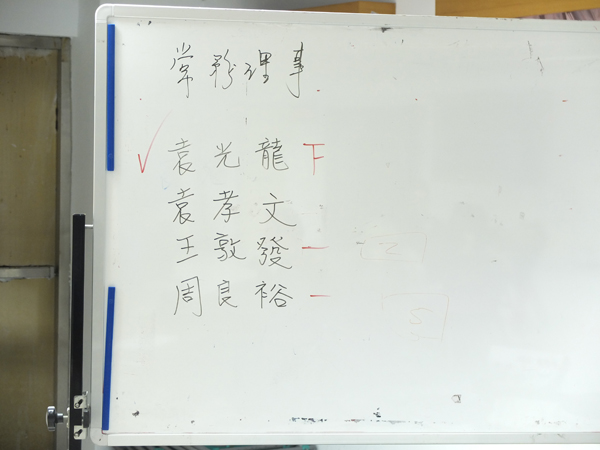 常務理事
✓袁光龍 下
袁孝文
王敦發 一
周良裕 一